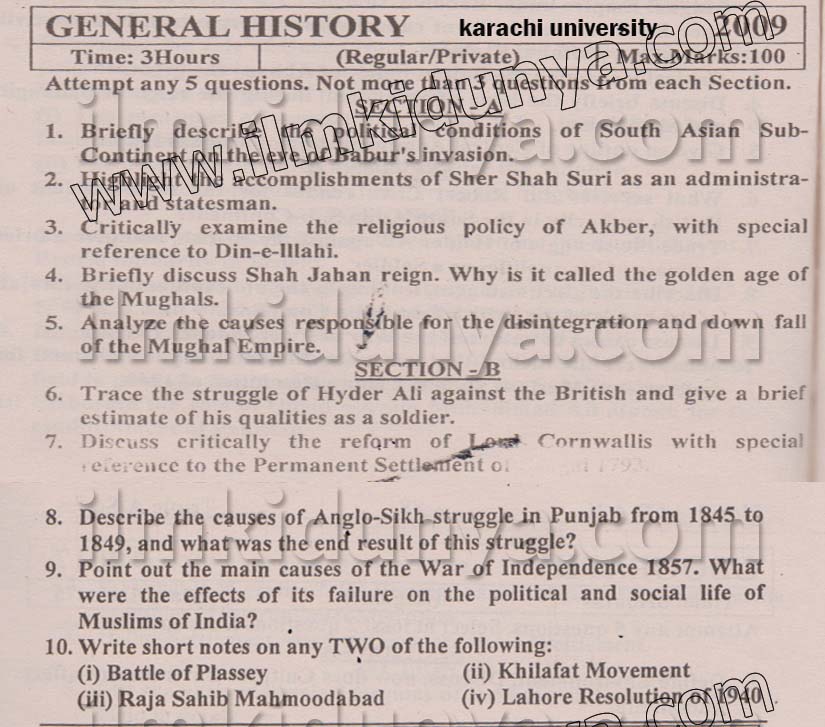 GENERAL HISTORY karachi university 2009
Time: 3Hours (Regular/Private) Max Marks:100
Attempt any 5 questions. Not more than 3 questions from each Section.
SECTION - A
1. Briefly describe the political conditions of South Asian Sub-
Continent on the eve of Babur's invasion.
2. Highlight the accomplishments of Sher Shah Suri as an administra-
tor and statesman.
3. Critically examine the religious policy of Akber, with special
reference to Din-e-Illahi.
4. Briefly discuss Shah Jahan reign. Why is it called the golden age of
the Mughals.
5. Analyze the causes responsible for the disintegration and down fall
of the Mughal Empire.
SECTION - B
6. Trace the struggle of Hyder Ali against the British and give a brief
estimate of his qualities as a soldier.
7. Discuss critically the reform of Lord Cornwallis with special
reference to the Permanent Settlement of 1793.
8. Describe the causes of Anglo-Sikh struggle in Punjab from 1845 to
1849, and what was the end result of this struggle?
9. Point out the main causes of the War of Independence 1857. What
were the effects of its failure on the political and social life of
Muslims of India?
10. Write short notes on any TWO of the following:
(i) Battle of Plassey (ii) Khilafat Movement
(iii) Raja Sahib Mahmoodabad (iv) Lahore Resolution of 1940
www.ilmkidunya.com
ilmkidunya.com
ilmkidunya.com
ilmkidunya.com
ilmkidunya.com